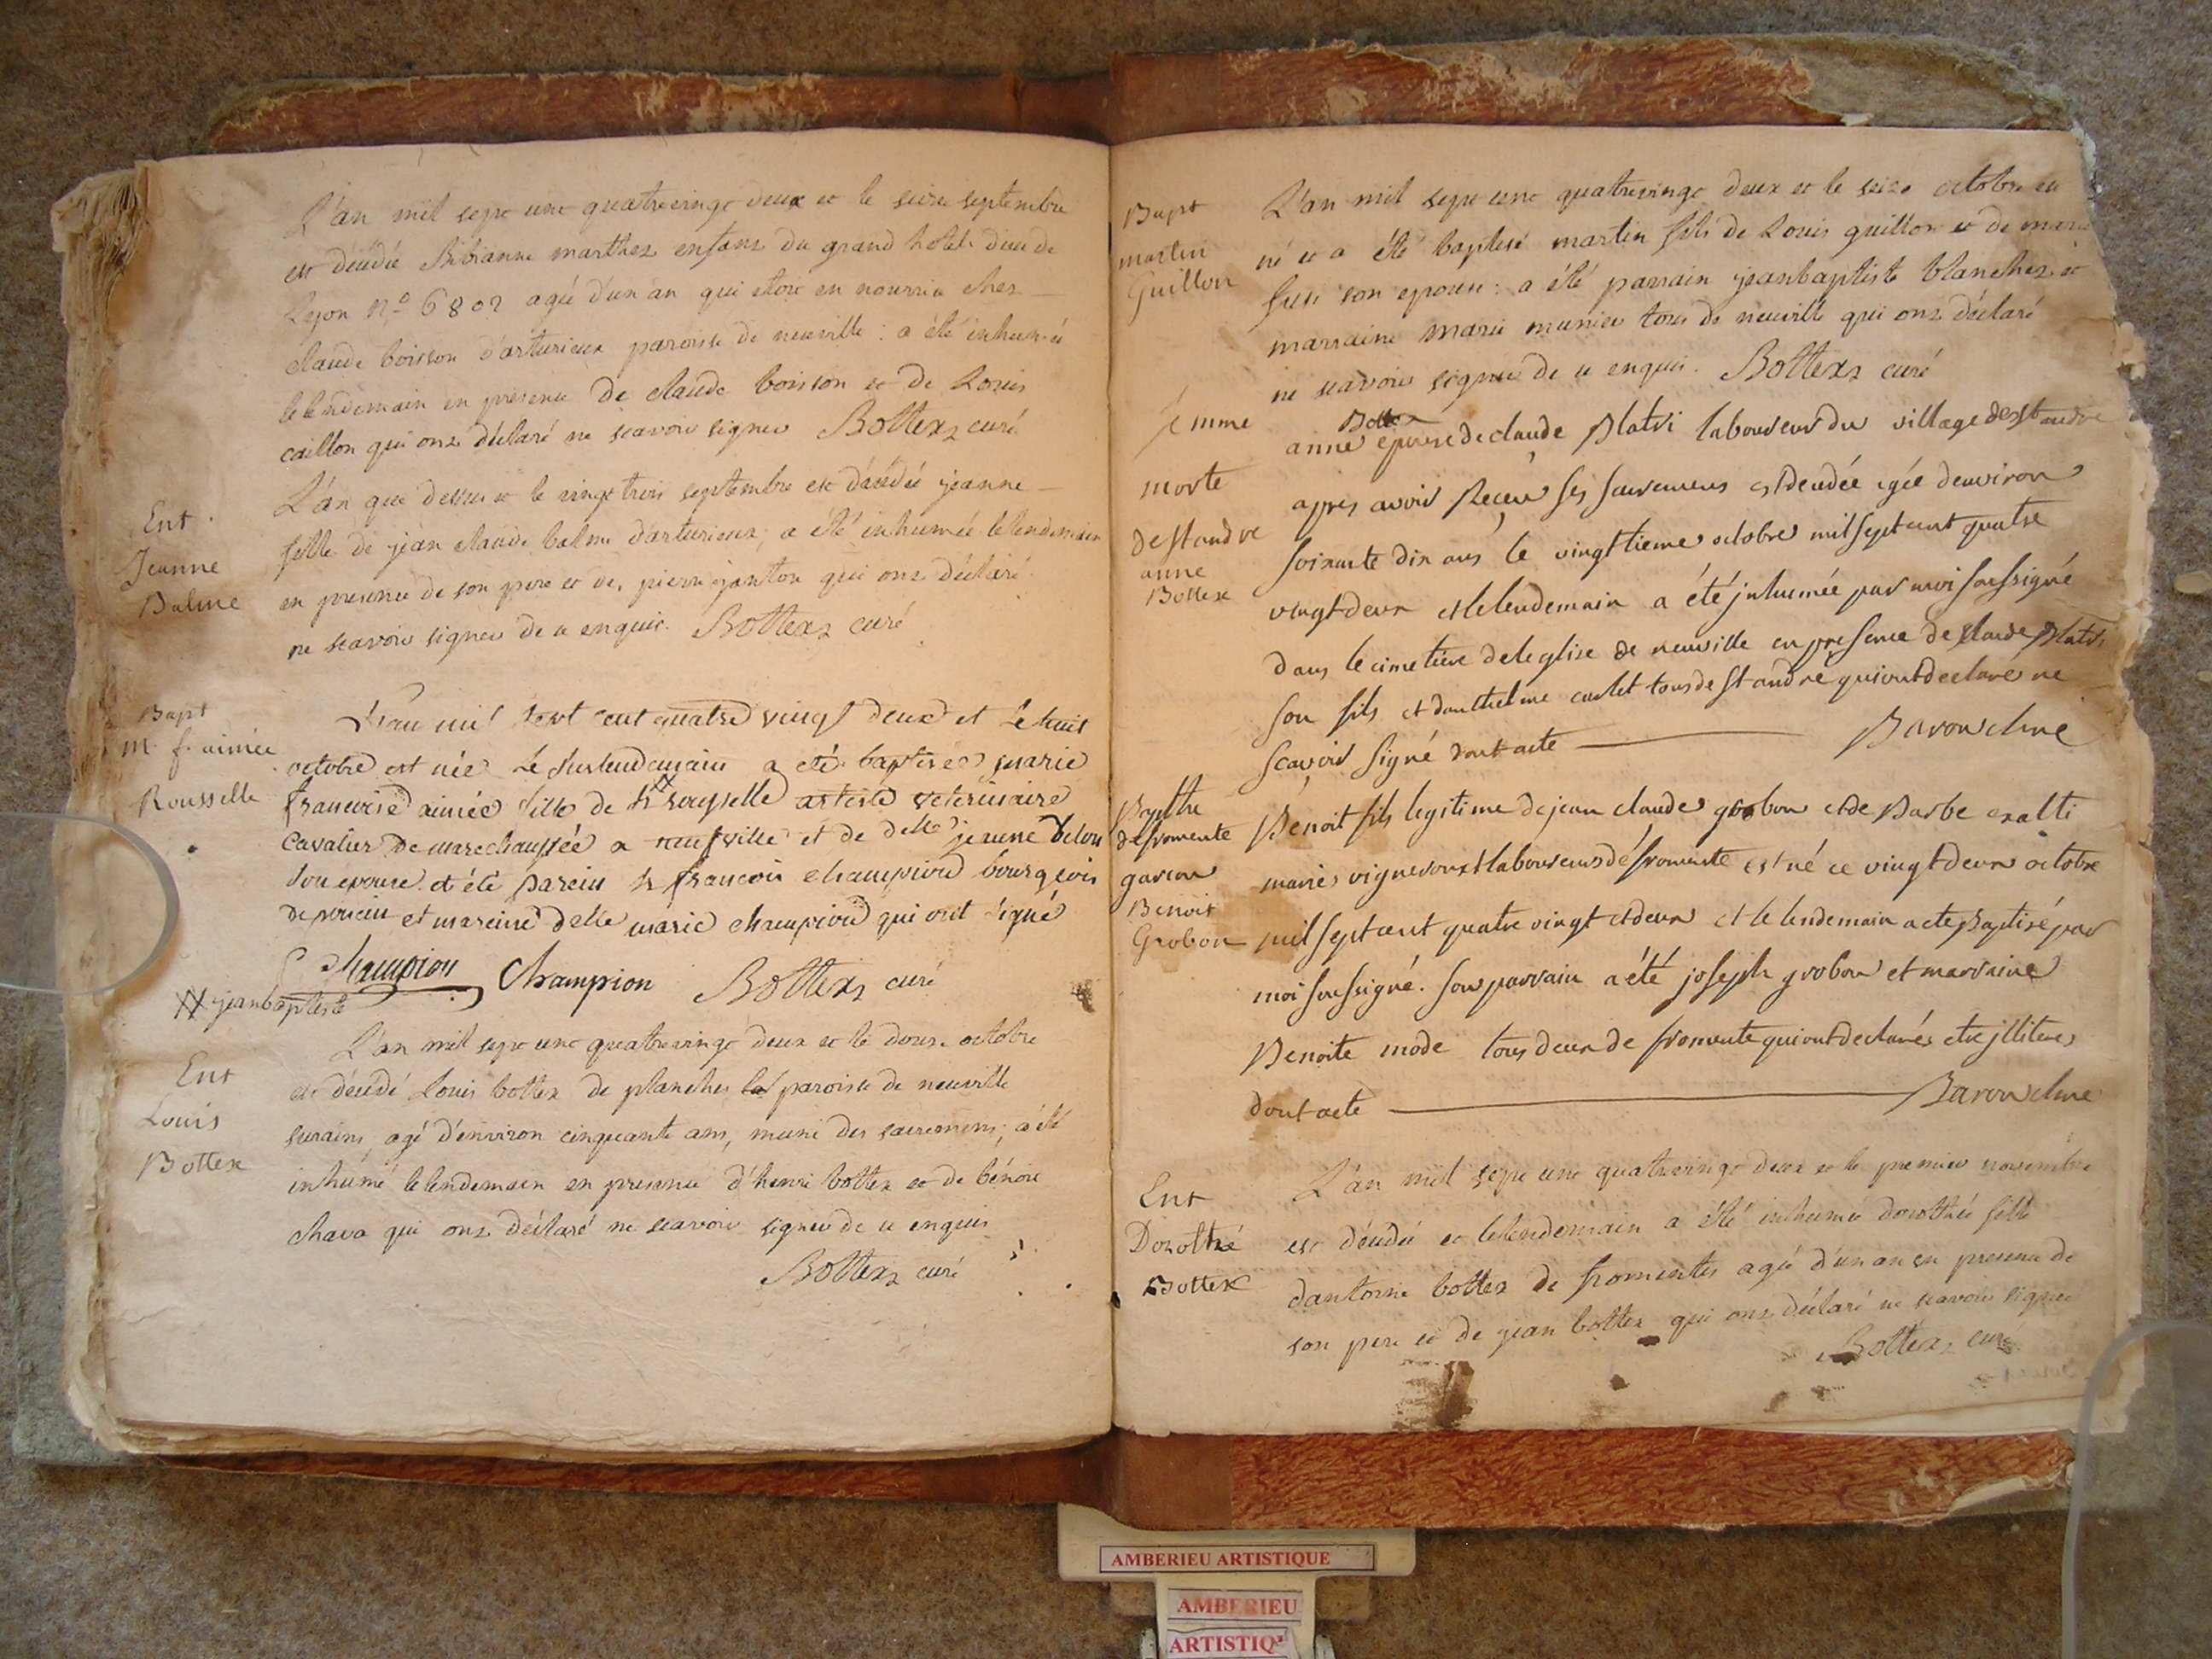 L'an mil sept cent quatrevingt deux et le seize septembre
est décédée Bibianne marthez enfant du grand hotel dieu de
Lyon n.o 6802 agée d'un an qui etoit en nourrice chez
claude boisson d'arturieux paroisse de neuville : a été inhumée
le lendemain en présence de claude boisson et de Louis
caillon qui ont déclaré ne scavoir signer Bottex curé
Ent
Jeanne
Balme
L'an que dessus et le vingt trois septembre est décédée jeanne
fille de jean claude balme d'arturieux, a été inhumée le lendemain
en presence de son pere et de pierre janton qui ont déclaré
ne scavoir signer de ce enquis. Bottex curé
Bapt
m. f. aimée
Rousselle
L'an mil sept cent quatre vingt deux et le huit
octobre est née Le surlendemain a eté baptisée marie
francoise aimée fille de Sr # rousselle artiste veterinaire
cavalier de marechaussée a neufville et de delle jeanne
son epouse et été parein Sr francois champion bourgeois
de et mareine delle marie champion qui ont signé
Champion Champion Bottex curé
# jean baptiste
Ent
Louis
Bottex
L'an mil sept cent quatrevingt deux et le douze octobre
est décédé Louis bottex de planches la paroisse de neuville
surains, agé d'environ cinquante ans, muni des sacremens, a été
inhumé le lendemain en presence d'henri bottex et de bénoit
chava qui ont déclaré ne scavoir signer de ce enquis
Bottex curé
Bapt
martin
Guillon
L'an mil sept cent quatrevingt deux et le seize octobre est
né et a été baptisé martin fils de Louis guillon et de marie
son epouse : a été parrain jeanbaptiste blanchet et
marraine marie munier tous de neuville qui ont déclaré
ne scavoir signer de ce enquis. Bottex curé
femme
morte
de st andre
anne
Bottex
Bottex
anne epouse de claude Platri laboureur du village de st andre
apres avoir Receu ses sacremens est decedée agée d'environ
soixante dix ans le vingttieme octobre mil sept cent quatre
vingt deux et le lendemain a été inhumée par moi soussigné
dans le cimetiere de leglise de neuville en presence de claude Platri
son fils et danthelme carlet tous de st andré qui ont declare ne
scavoir signé dont acte Baron
Baptme
de fromente
garcon
Benoit
Grobon
Benoit fils legitime de jean claude grobon et de Barbe exalti
mariés vignerons et laboureurs de fromente est né ce vingt deux octobre
mil sept cent quatre vingt et deux et le lendemain a ete Baptisé par
moi soussigné. son parrain a été joseph grobon et marraine
Benoite mode tous deux de fromente qui ont declarés etre jlliterés
dont acte Baron
Ent
Dorothé
Bottex
L'an mil sept cent quatrevingt deux et le premier novembre
est décédée et le lendemain a été inhumée dorothée fille
dantoine bottex de fromentes agée d'un an en presence de
son pere et de jean bottex qui ont déclaré ne scavoir signer
Bottex curé
AMBERIEU ARTISTIQUE
AMBERIEU
ARTISTIQ